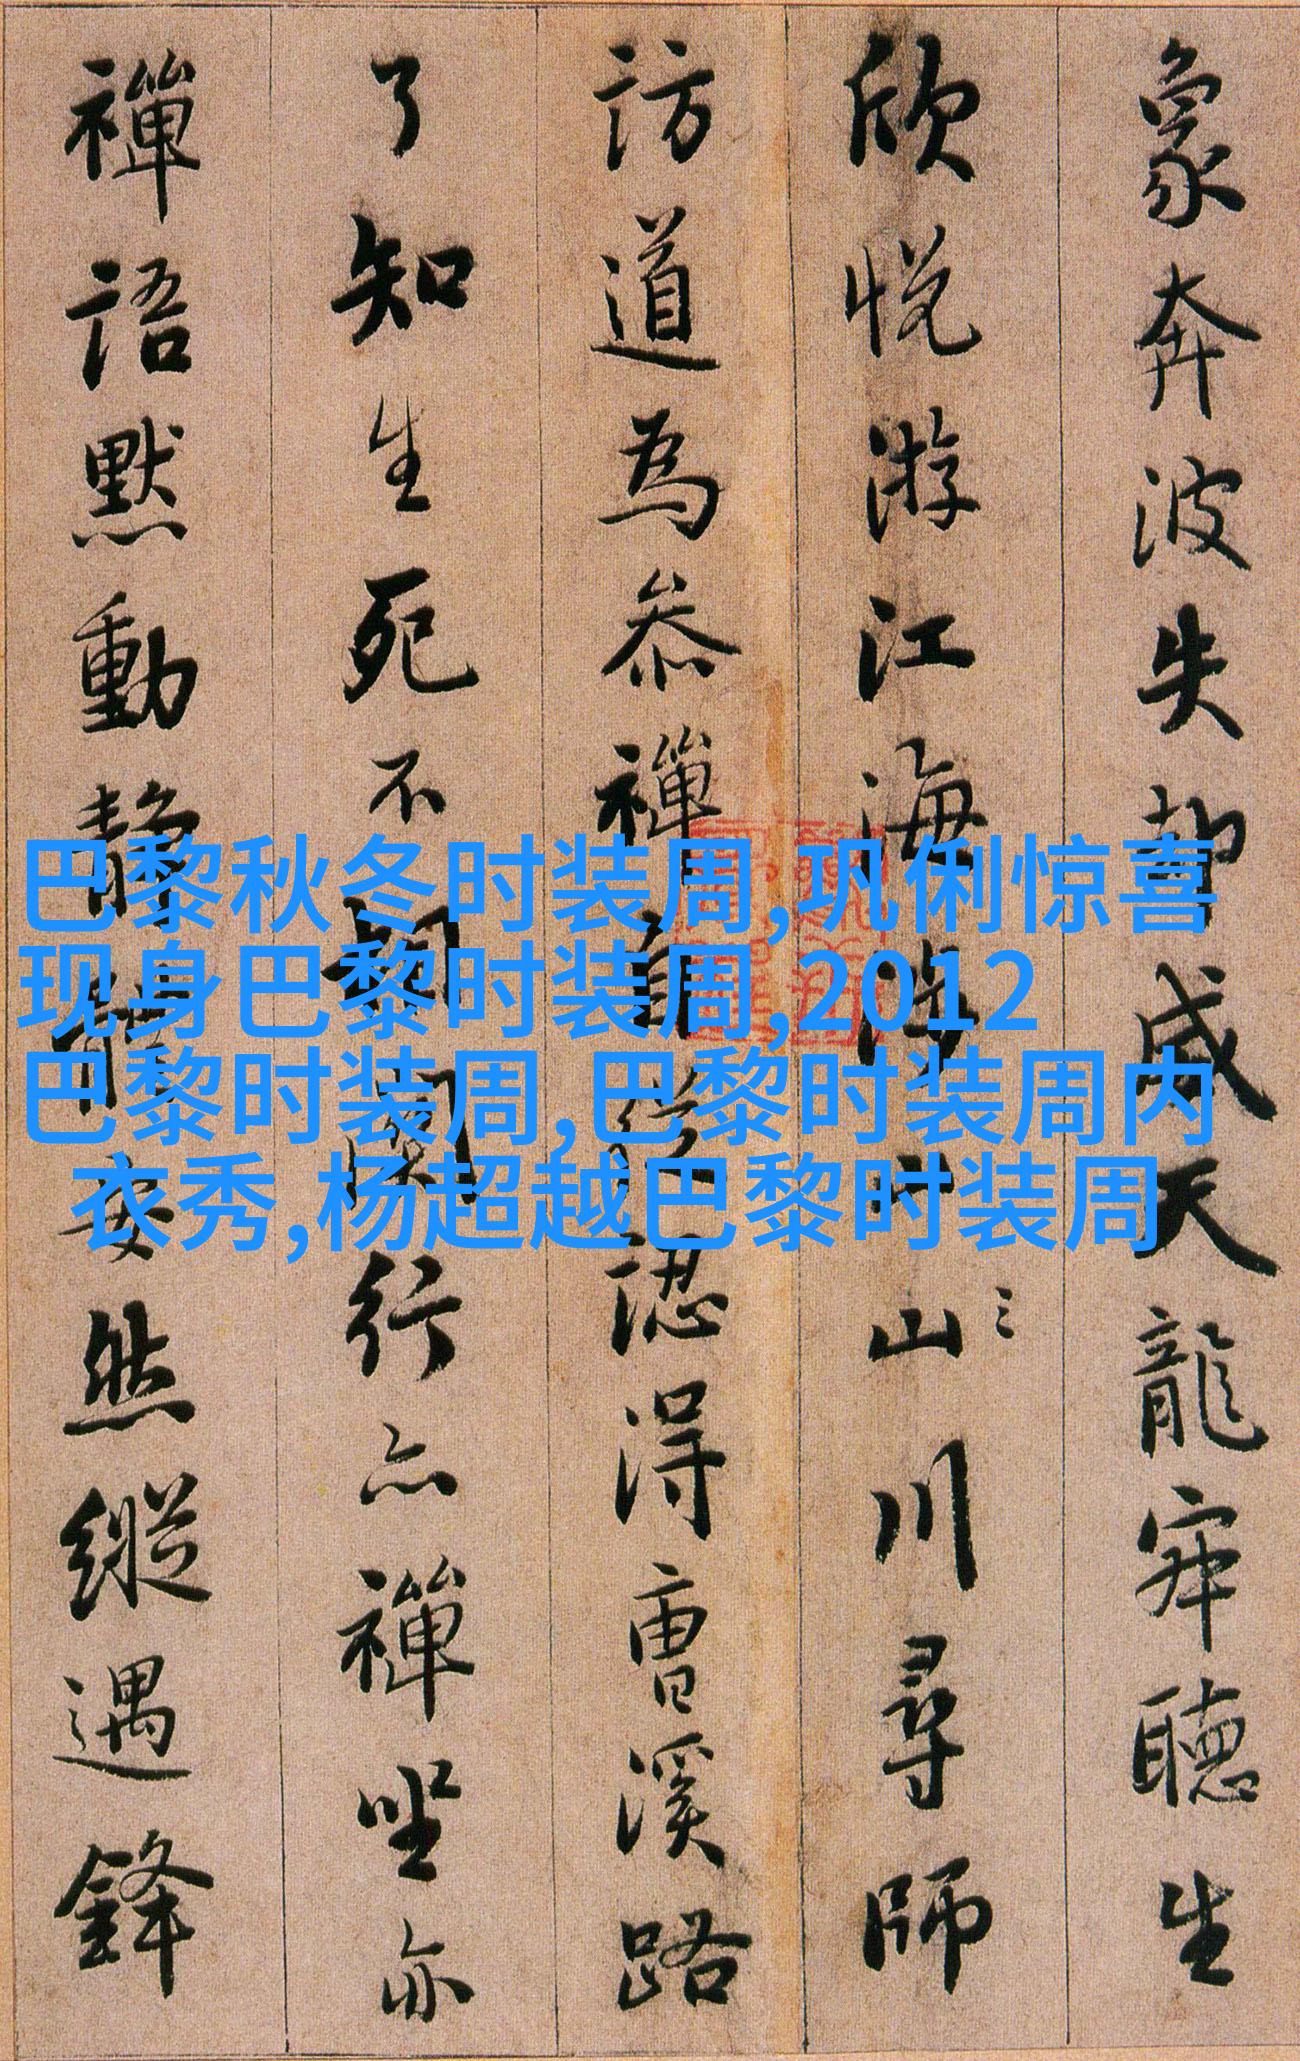 象奔波失却威天龍寂聽生
欣悅游江海山川尋師
訪道為叅禪自認得曹溪路
了知生死不行亦禪坐亦
禪語默動靜體安然縱遇鋒
巴黎秋冬时装周,巩俐惊喜
现身巴黎时装周,2012
巴黎时装周,巴黎时装周内
衣秀,杨超越巴黎时装周